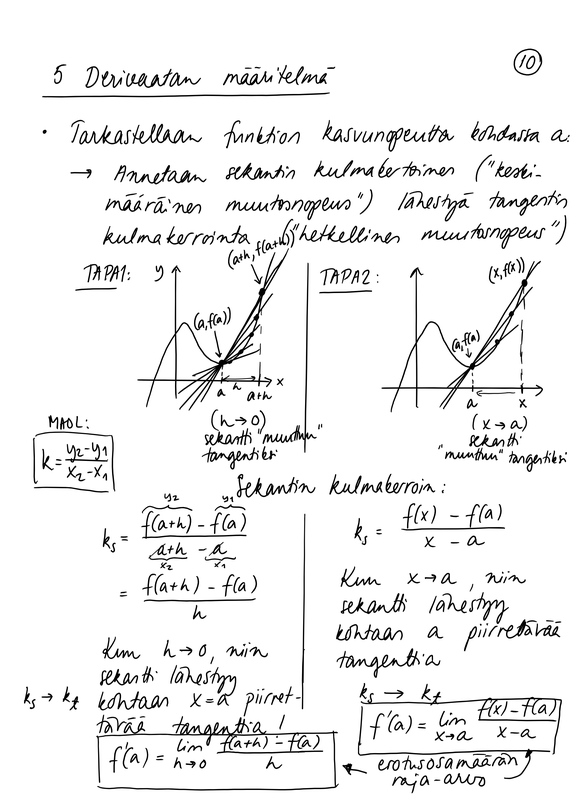 5 Derivaatan määritelmä
10
• Tarkastellaan funktion kasvunopeutta kohdassa a:
→ Annetaan sekantin kulmakertoimen ("keski-
määräinen muutosnopeus") lähestyä tangentin
kulmakerrointa ("hetkellinen muutosnopeus")
TAPA1:
y
(a+h, f(a+h))
(a, f(a))
a
h
a+h
x
(h→0)
sekantti "muuttuu"
tangentiksi
TAPA2:
(x, f(x))
(a, f(a))
a
x
(x→a)
sekantti
"muuttuu" tangentiksi
MAOL:
k = (y₂-y₁)/(x₂-x₁)
Sekantin kulmakerroin:
y₂ y₁
kₛ = (f(a+h) - f(a))/(a+h - a)
x₂ x₁
= (f(a+h) - f(a))/h
Kun h→0, niin
sekantti lähestyy
kohtaan x=a piirret-
tävää tangenttia!
kₛ → kₜ
f'(a) = lim h→0 (f(a+h) - f(a))/h
kₛ = (f(x) - f(a))/(x - a)
Kun x→a, niin
sekantti lähestyy
kohtaan a piirrettävää
tangenttia
kₛ → kₜ
f'(a) = lim x→a (f(x)-f(a))/(x-a)
erotusosamäärän
raja-arvo